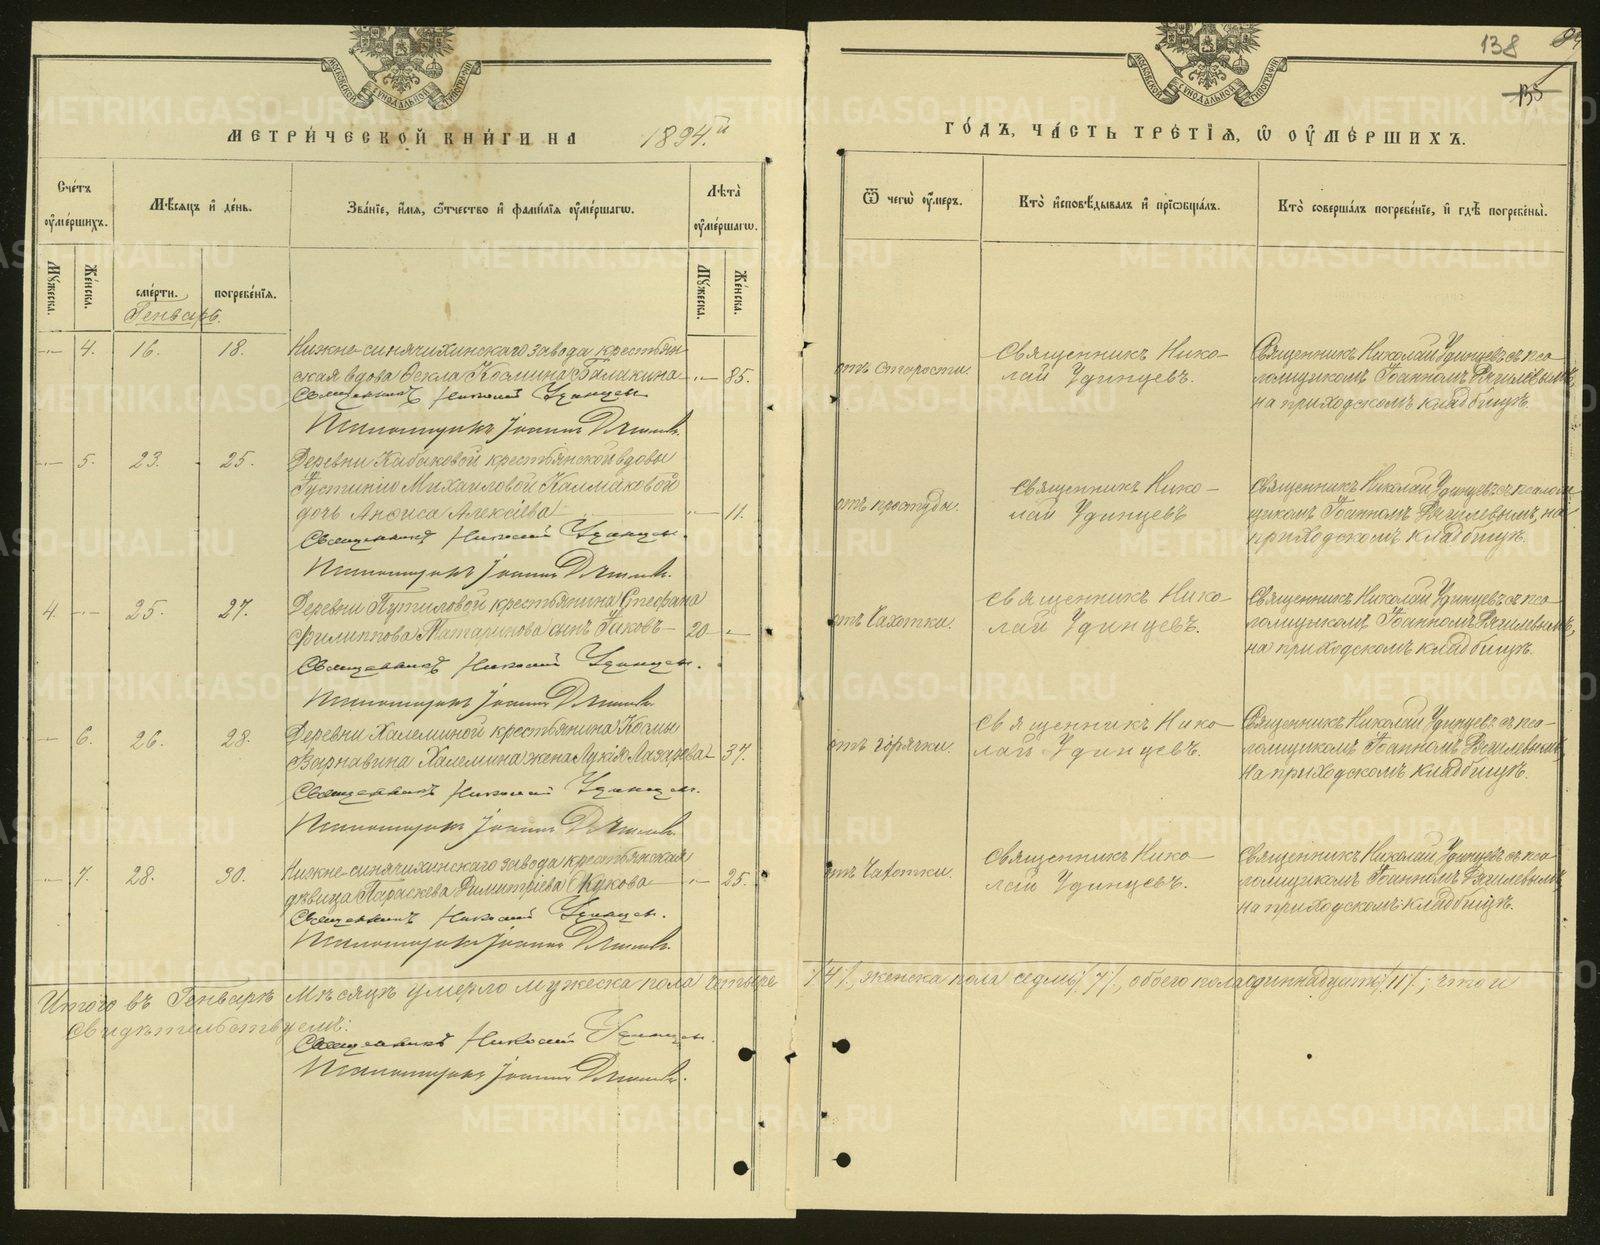 138
135
МОСКОВСКОЙ СѴНОДАЛЬНОЙ ТИПОГРАФІИ
МОСКОВСКОЙ СѴНОДАЛЬНОЙ ТИПОГРАФІИ
МЕТРИ́ЧЕСКОЙ КНИ́ГИ НА 1894.й
ГО́ДЪ, ЧА́СТЬ ТРЕ́ТІЯ, Ѡ҆ ОУ҆МЕ́РШИХЪ.
Сче́тъ оу҆ме́ршихъ.
Мѣ́сяцъ и҆ де́нь.
Зва́нїе, и҆́мя, ѻ҆́тчество и҆ фами́лїя оу҆ме́ршагѡ.
Лѣ́та оу҆ме́ршагѡ.
Ѿ чегѡ̀ оу҆́меръ.
Кто̀ и҆сповѣ́дывалъ и҆ прїѡбща́лъ.
Кто̀ соверша́лъ погребе́нїе, и҆ гдѣ̀ погребены̀.
Му́жеска.
Же́нска.
сме́рти.
погребе́нїя.
Му́жеска.
Же́нска.
Генварь.
4. 16. 18. Нижне-синячихинскаго завода крестьян-
ская вдова Ѳекла Космина Балакина 85.
Священникъ Николай Удинцевъ
Псаломщикъ Іоаннъ
отъ старости.
Священникъ Нико-
лай Удинцевъ.
Священникъ Николай Удинцевъ съ пса-
ломщикомъ Іоанномъ
на приходскомъ кладбищѣ.
5. 23. 25. Деревни Кабаковой крестьянской вдовы
Густиніи Михаиловой Калмаковой
дочь Анѳиса Алексіева 11.
Священникъ Николай Удинцевъ.
Псаломщикъ Іоаннъ
отъ простуды.
Священникъ Нико-
лай Удинцевъ
Священникъ Николай Удинцевъ съ псалом-
щикомъ Іоанномъ на
приходскомъ кладбищѣ.
4. 25. 27. Деревни Путиловой крестьянина Стефана
Филиппова Татаринова сынъ Іаковъ 20
Священникъ Николай Удинцевъ.
Псаломщикъ Іоаннъ
отъ чахотки.
Священникъ Нико-
лай Удинцевъ.
Священникъ Николай Удинцевъ съ пса-
ломщикомъ Іоанномъ
на приходскомъ кладбищѣ.
6. 26. 28. Деревни Халеминой крестьянина Космы
Варнавина Халемина жена Лукія Лазарева 37.
Священникъ Николай Удинцевъ.
Псаломщикъ Іоаннъ
отъ горячки.
Священникъ Нико-
лай Удинцевъ.
Священникъ Николай Удинцевъ съ пса-
ломщикомъ Іоанномъ
на приходскомъ кладбищѣ.
7. 28. 30. Нижне-синячихинскаго завода крестьянская
дѣвица Параскева Димитріева Жукова 25.
Священникъ Николай Удинцевъ.
Псаломщикъ Іоаннъ
отъ чахотки.
Священникъ Нико-
лай Удинцевъ.
Священникъ Николай Удинцевъ съ пса-
ломщикомъ Іоанномъ
на приходскомъ кладбищѣ.
Итого въ Генварѣ мѣсяцѣ умерло мужеска пола четыре /4/, женска пола седмь /7/, обоего пола одиннадцать /11/; что и
свидѣтельствуемъ:
Священникъ Николай Удинцевъ.
Псаломщикъ Іоаннъ
METRIKI.GASO-URAL.RU